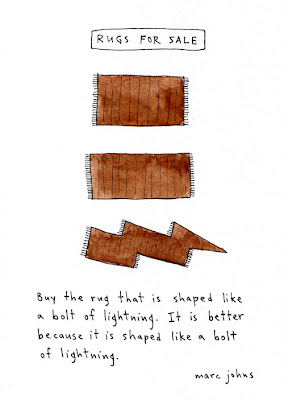 RUGS FOR SALE
Buy the rug that is shaped like
a bolt of lightning. It is better
because it is shaped like a bolt
of lightning.
marc johns